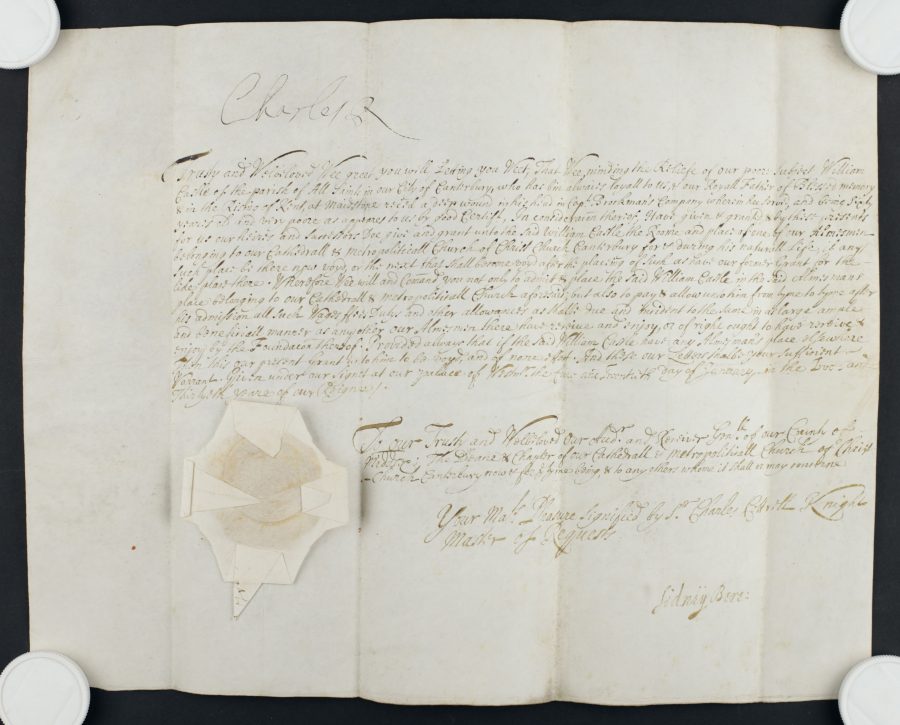 Charles R
Trusty and Welbeloved Wee greet you well Letting you Weet, That Wee, minding the Reliefe of our poore Subject William
Castle of the parish of All Saints in our City of Canterbury, who has bin alwaies loyall to us, & our Royall Father of blessed memory
& in the Riseing of Kent, at Maidstone receiv'd a deep wound in his head in Capt. Brockman's Company wherein hee serv'd, and being Sixty
yeares old and very poore as appeares to us by good Certife. In consideration thereof, Have given & granted & by these presents
for us our heires and successors Doe give and grant unto the said William Castle the Rome and place of one of our Almesmen
belonging to our Cathedrall & Metropoliticall Church of Christ Church Canterbury for & during his naturall life, if any
such place be there now voyd, or the next that shall become voyd after the placeing of such as have our former Grant for the
like places there. Wherefore Wee will and Command you not only to admit & place the said William Castle in the said Almesmans
place belonging to our Cathedrall & Metropoliticall Church aforesaid, but also to pay & allow unto him from tyme to tyme after
his admission all such Wages ffees Dutys and other allowances as shalbe due and incident to the same in as large ample
and beneficiall manner as any other our Almesmen there have receive and enjoy, or of right ought to have receive &
enjoy by the Foundation thereof. Provided alwaies that if the said William Castle have any Almsman's place elsewhere
then this our present Grant to him to be voyd, and of none effect. And these our Letters shalbe your sufficient
Warrant. Given under our Signet at our pallace of Westmr. the Twentieth day of January in the
Thirtyeth yeare of our Reigne.
To our Trusty and Welbeloved Our and Receiver Genll. of our County of
Middx; The Deane & Chapter of our Cathedrall & Metropoliticall Church of Christ
Church Canterbury now & for ye tyme being, & to any others whome it shall or may concerne
Your Mats. Pleasure signified by Sr. Charles Cotterell Knight
Master of Requests
Sidney Bere: